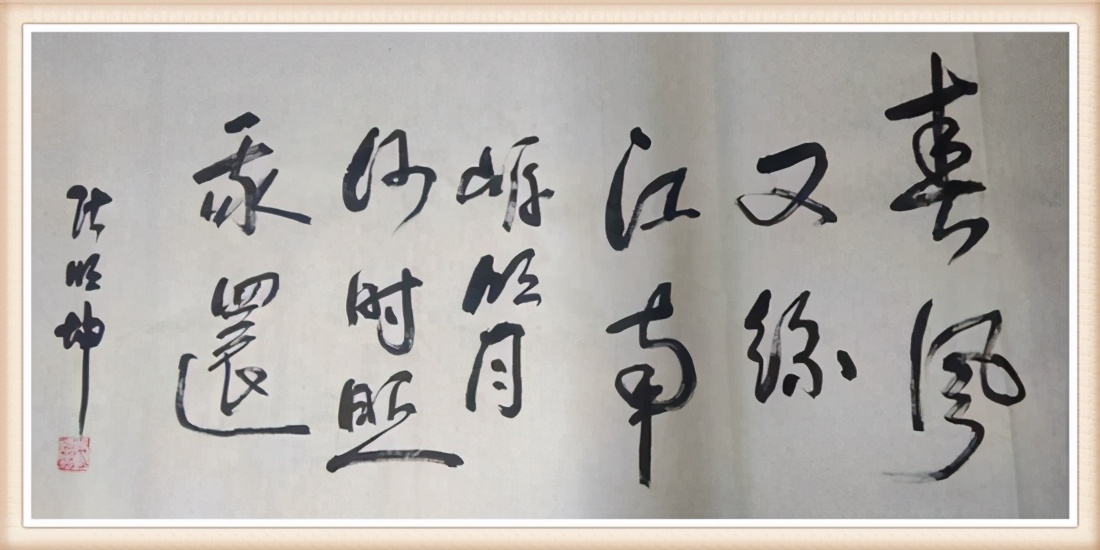 春風
又綠
江南
岸明月
何时照
我還
坤